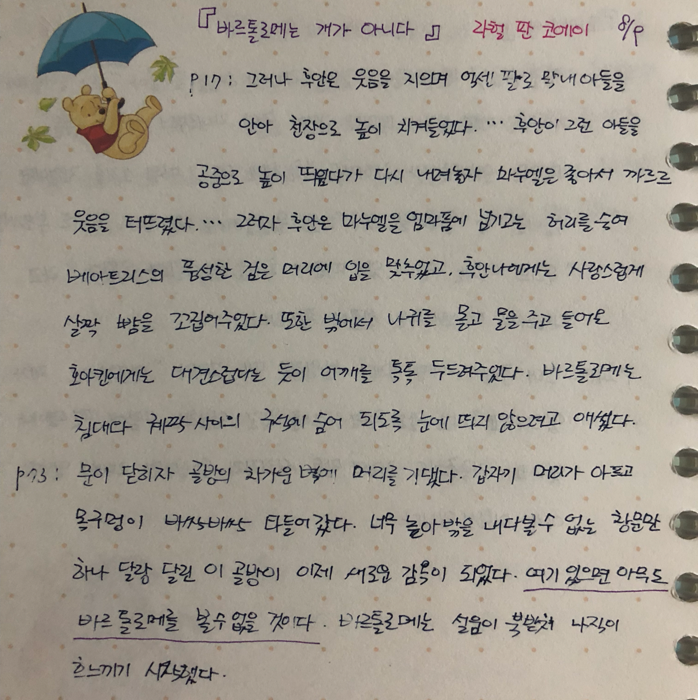 『바르톨로메는 개가 아니다』 라헐 판 코에이 8/9
P17: 그러나 후안은 웃음을 지으며 억센 팔로 막내아들을
안아 천장으로 높이 치켜들었다. … 후안이 그런 아들을
공중으로 높이 띄웠다가 다시 내려놓자 마누엘은 좋아서 까르르
웃음을 터뜨렸다. … 그러자 후안은 마누엘을 엄마품에 넘기고는 허리를 숙여
베아트리스의 풍성한 검은 머리에 입을 맞추었고, 후안나에게는 사랑스럽게
살짝 뺨을 꼬집어주었다. 또한 밖에서 나귀를 몰고 물을 주고 들어온
호아킨에게는 대견스럽다는 듯이 어깨를 톡톡 두드려주었다. 바르톨로메는
침대와 궤짝 사이의 구석에 숨어 되도록 눈에 띄지 않으려고 애썼다.
P73: 문이 닫히자 골방의 차가운 벽에 머리를 기댔다. 갑자기 머리가 아프고
목구멍이 바싹바싹 타들어 갔다. 너무 높아 밖을 내다볼 수 없는 창문만
하나 달랑 달린 이 골방이 이제 새로운 감옥이 되었다. 여기 있으면 아무도
바르톨로메를 볼 수 없을 것이다. 바르톨로메는 설움이 북받쳐 나직이
흐느끼기 시작했다.